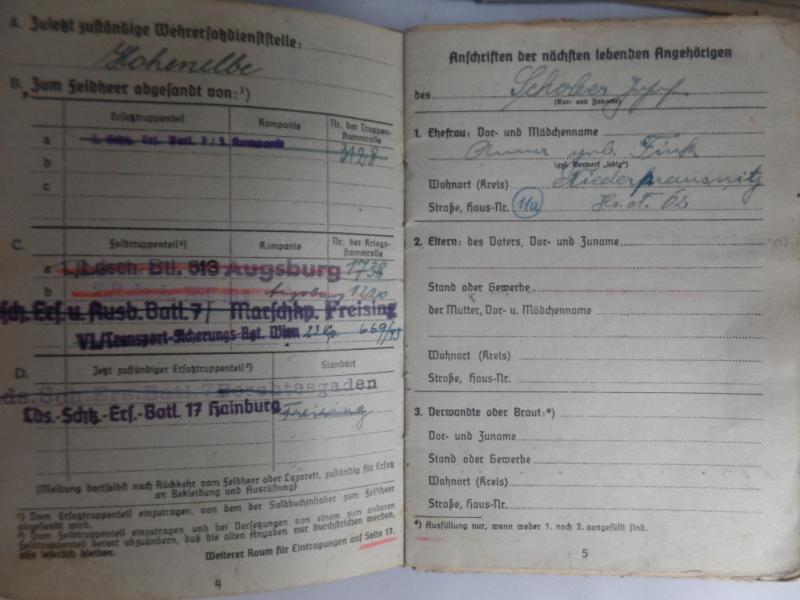 A. Zuletzt zuständige Wehrersatzdienststelle:
Hohenelbe
B. Zum Feldheer abgesandt von:¹)
Ersatztruppenteil Kompanie Nr. der Truppenstammrolle
a 3128
b
c
C. Feldtruppenteil²) Kompanie Nr. der Kriegsstammrolle
a 1./Ldsch. Btl. 513 Augsburg 1738
b Augsburg
sch. Ers. u. Ausb. Batl. 7/ Marschkp. Freising
VI./Transport-Sicherungs-Rgt. Wien 669/45
D. Jetzt zuständiger Ersatztruppenteil²) Standort
ds. Sch. Ers. Batl. 7 Berchtesgaden
Lds.-Schtz.-Ers.-Batl. 17 Hainburg Freising
(Meldung dortselbst nach Rückkehr vom Feldheer oder Lazarett, zuständig für Ersatz
an Bekleidung und Ausrüstung)
¹) Vom Ersatztruppenteil einzutragen, von dem der Soldbuchinhaber zum Feldheer
abgesandt wird.
²) Vom Feldtruppenteil einzutragen und bei Versetzungen von einem zum anderen
Feldtruppenteil derart abzuändern, daß die alten Angaben nur durchstrichen werden,
also leserlich bleiben.
Weiterer Raum für Eintragungen auf Seite 17.
4
Anschriften der nächsten lebenden Angehörigen
des Schober Josef
(Vor- und Zuname)
1. Ehefrau: Vor- und Mädchenname
geb. Fink
(ggf. Vermerk „ledig")
Wohnort (Kreis) Niederprausnitz
Straße, Haus-Nr. 11a 62
2. Eltern: des Vaters, Vor- und Zuname
Stand oder Gewerbe
der Mutter, Vor- u. Mädchenname
Wohnort (Kreis)
Straße, Haus-Nr.
3. Verwandte oder Braut:*)
Vor- und Zuname
Stand oder Gewerbe
Wohnort (Kreis)
Straße, Haus-Nr.
*) Ausfüllung nur, wenn weder 1. noch 2. ausgefüllt sind.
5